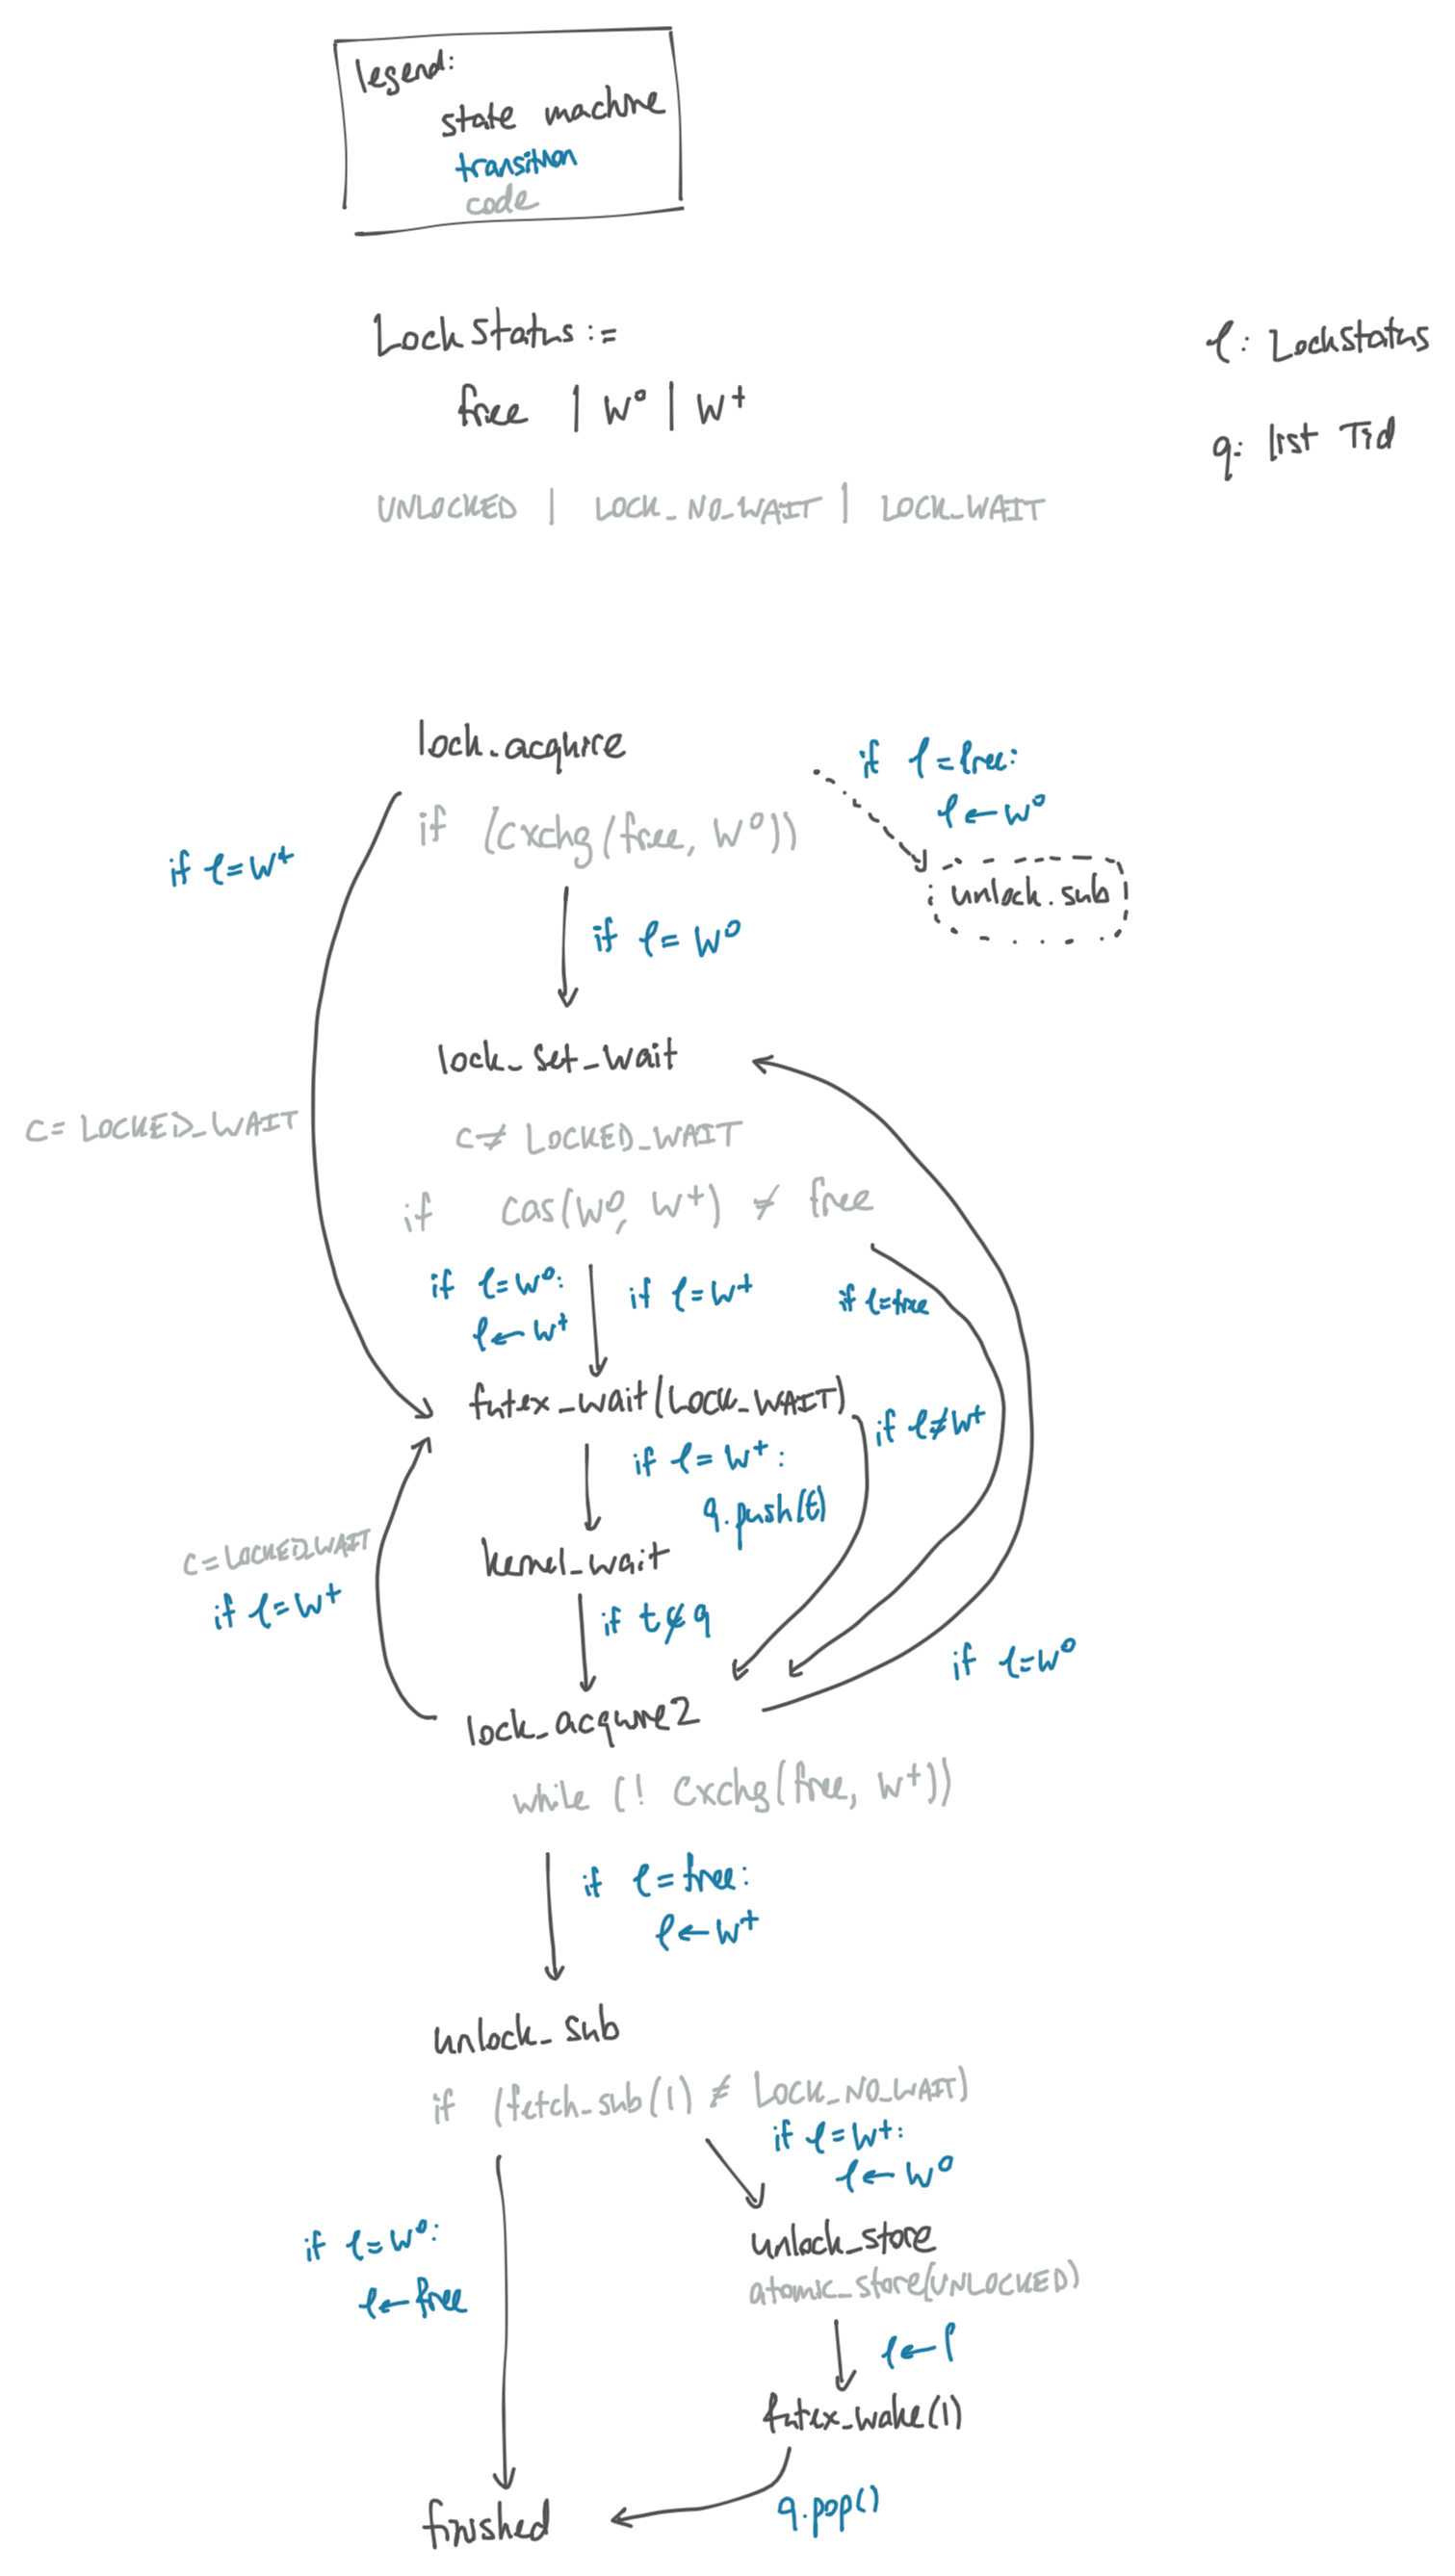 legend:
state machine
transition
code
Lock Status :=
free | w⁰ | w⁺
UNLOCKED | LOCK_NO_WAIT | LOCK_WAIT
l: Lockstatus
q: list Tid
lock_acquire
if (cxchg(free, w⁰))
if l=free:
l ← w⁰
unlock_sub
if l=w⁺
if l= w⁰
lock_set_wait
c= LOCKED_WAIT
c≠ LOCKED_WAIT
if cas(w⁰, w⁺) ≠ free
if l=w⁰:
l← w⁺
if l=w⁺
if l=free
futex_wait(LOCK_WAIT)
if l≠w⁺
if l= w⁺:
q.push(t)
kernel_wait
c=LOCKED_WAIT
if l=w⁺
if t∉q
if l=w⁰
lock_acquire2
while (! cxchg(free, w⁺))
if l=free:
l←w⁺
unlock_sub
if (fetch_sub(1) ≠ LOCK_NO_WAIT)
if l=w⁺:
l← w⁰
if l=w⁰:
l←free
unlock_store
atomic_store(UNLOCKED)
l←f
futex_wake(1)
q.pop()
finished